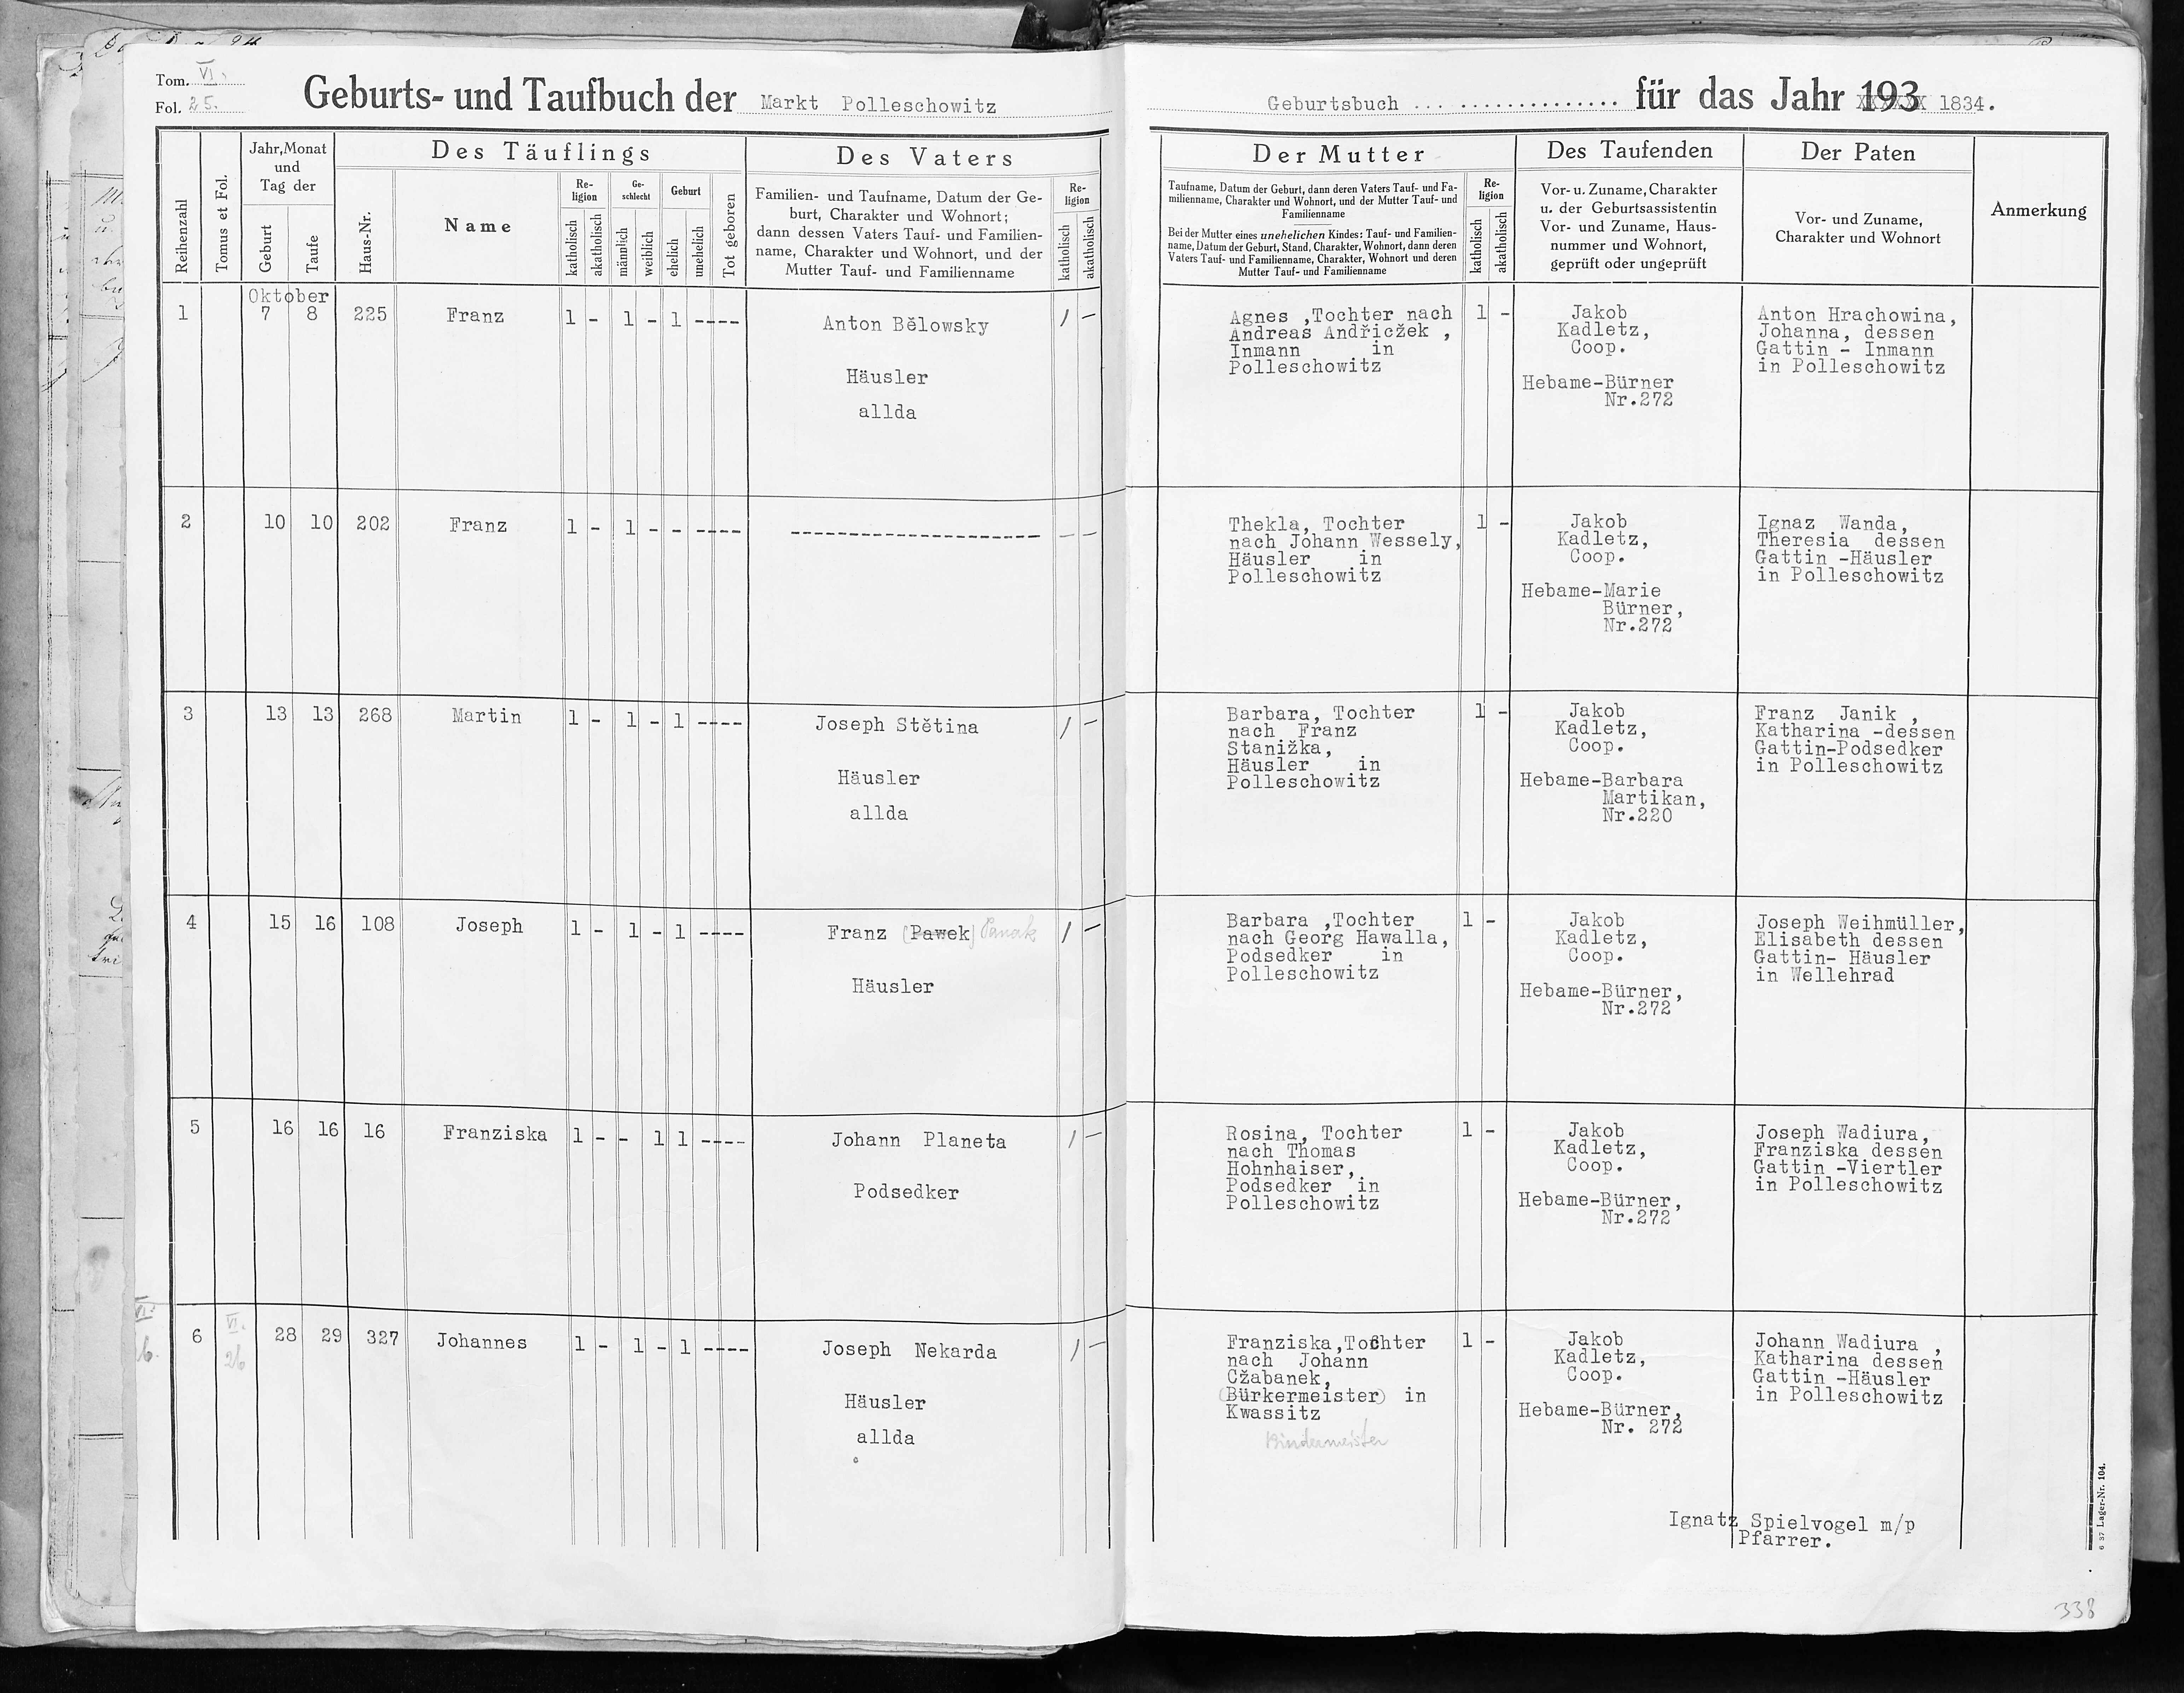 Tom. VI.
Fol. 25.
Geburts- und Taufbuch der Markt Polleschowitz
Reihenzahl
Tomus et Fol.
Jahr, Monat
und
Tag der
Geburt
Taufe
Des Täuflings
Haus-Nr.
Name
Re-
ligion
katholisch
akatholisch
Ge-
schlecht
männlich
weiblich
Geburt
ehelich
unehelich
Tot geboren
Des Vaters
Familien- und Taufname, Datum der Ge-
burt, Charakter und Wohnort;
dann dessen Vaters Tauf- und Familien-
name, Charakter und Wohnort, und der
Mutter Tauf- und Familienname
Re-
ligion
katholisch
akatholisch
Oktober
1 7 8 225 Franz 1 - 1 - 1 ---- Anton Bělowsky / -
Häusler
allda
2 10 10 202 Franz 1 - 1 - - ---- ---------------------- - -
3 13 13 268 Martin 1 - 1 - 1 ---- Joseph Stětina / -
Häusler
allda
4 15 16 108 Joseph 1 - 1 - 1 ---- Franz (Pawek) / -
Häusler
5 16 16 16 Franziska 1 - - 1 1 ---- Johann Planeta / -
Podsedker
VI.
26.
6 VI. 28 29 327 Johannes 1 - 1 - 1 ---- Joseph Nekarda / -
26
Häusler
allda
Geburtsbuch .................. für das Jahr 193 1834.
Der Mutter
Taufname, Datum der Geburt, dann deren Vaters Tauf- und Fa-
milienname, Charakter und Wohnort, und der Mutter Tauf- und
Familienname
Bei der Mutter eines unehelichen Kindes: Tauf- und Familien-
name, Datum der Geburt, Stand, Charakter, Wohnort, dann deren
Vaters Tauf- und Familienname, Charakter, Wohnort und deren
Mutter Tauf- und Familienname
Re-
ligion
katholisch
akatholisch
Des Taufenden
Vor- u. Zuname, Charakter
u. der Geburtsassistentin
Vor- und Zuname, Haus-
nummer und Wohnort,
geprüft oder ungeprüft
Der Paten
Vor- und Zuname,
Charakter und Wohnort
Anmerkung
Agnes ,Tochter nach 1 -
Andreas Andřiczek ,
Inmann in
Polleschowitz
Jakob
Kadletz,
Coop.
Hebame-Bürner
Nr.272
Anton Hrachowina,
Johanna, dessen
Gattin - Inmann
in Polleschowitz
Thekla, Tochter 1 -
nach Johann Wessely,
Häusler in
Polleschowitz
Jakob
Kadletz,
Coop.
Hebame-Marie
Bürner,
Nr.272
Ignaz Wanda,
Theresia dessen
Gattin -Häusler
in Polleschowitz
Barbara, Tochter 1 -
nach Franz
Stanižka,
Häusler in
Polleschowitz
Jakob
Kadletz,
Coop.
Hebame-Barbara
Martikan,
Nr.220
Franz Janik ,
Katharina -dessen
Gattin-Podsedker
in Polleschowitz
Barbara ,Tochter 1 -
nach Georg Hawalla,
Podsedker in
Polleschowitz
Jakob
Kadletz,
Coop.
Hebame-Bürner,
Nr.272
Joseph Weihmüller,
Elisabeth dessen
Gattin- Häusler
in Wellehrad
Rosina, Tochter 1 -
nach Thomas
Hohnhaiser,
Podsedker in
Polleschowitz
Jakob
Kadletz,
Coop.
Hebame-Bürner,
Nr.272
Joseph Wadiura,
Franziska dessen
Gattin -Viertler
in Polleschowitz
Franziska,Tochter 1 -
nach Johann
Cžabanek,
(Bürkermeister) in
Kwassitz
Bindermeister
Jakob
Kadletz,
Coop.
Hebame-Bürner,
Nr. 272
Johann Wadiura ,
Katharina dessen
Gattin -Häusler
in Polleschowitz
Ignatz Spielvogel m/p
Pfarrer.
6 37 Lager-Nr. 104.
338